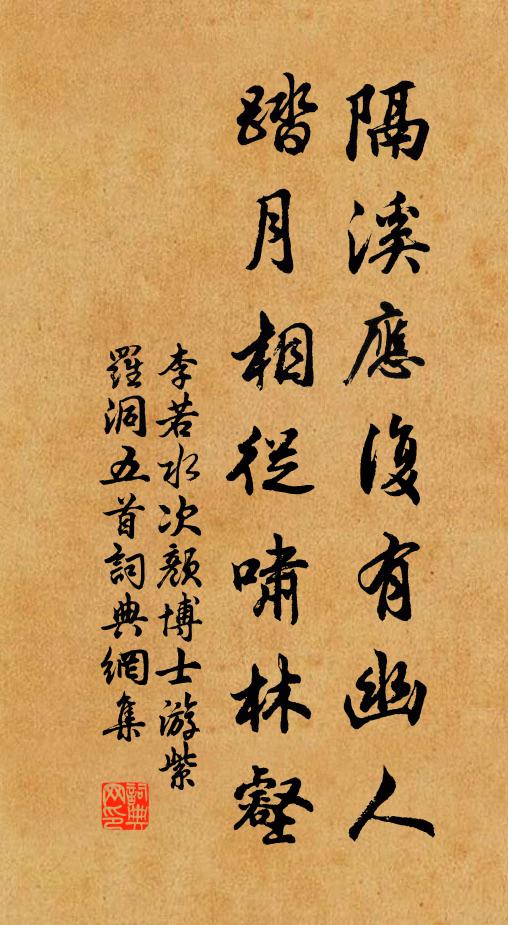 隔溪應復有幽人
踏月相從嘯林壑
李若水次顏博士游紫
羅洞五首詞典網集
詞典
网印